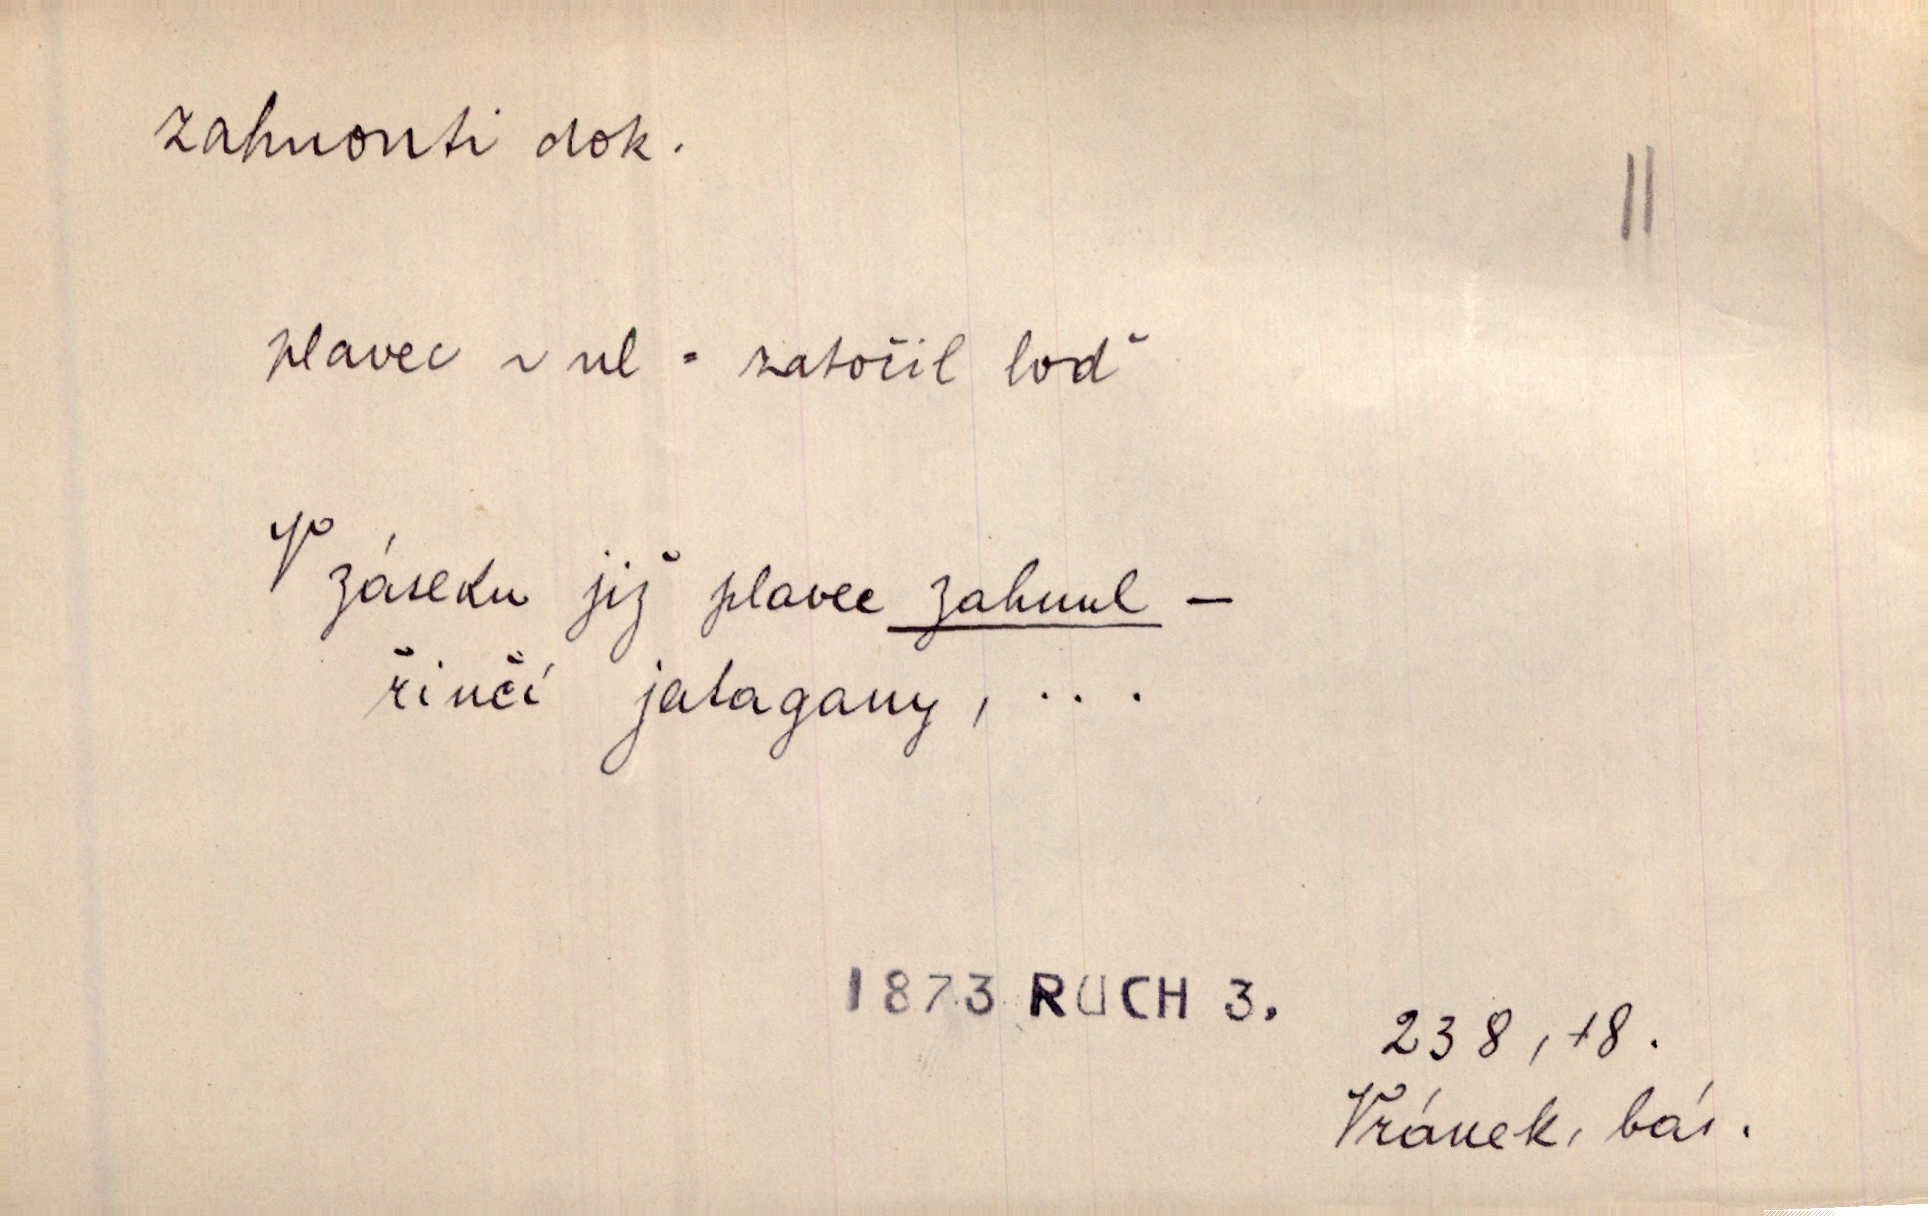 zahnouti dok.
||
plavec ~ nul = zatočil loď
V záseku již plavec zahnul —
řinčí jatagany, ...
1873 RUCH 3.
238, 18.
Vránek, bás.